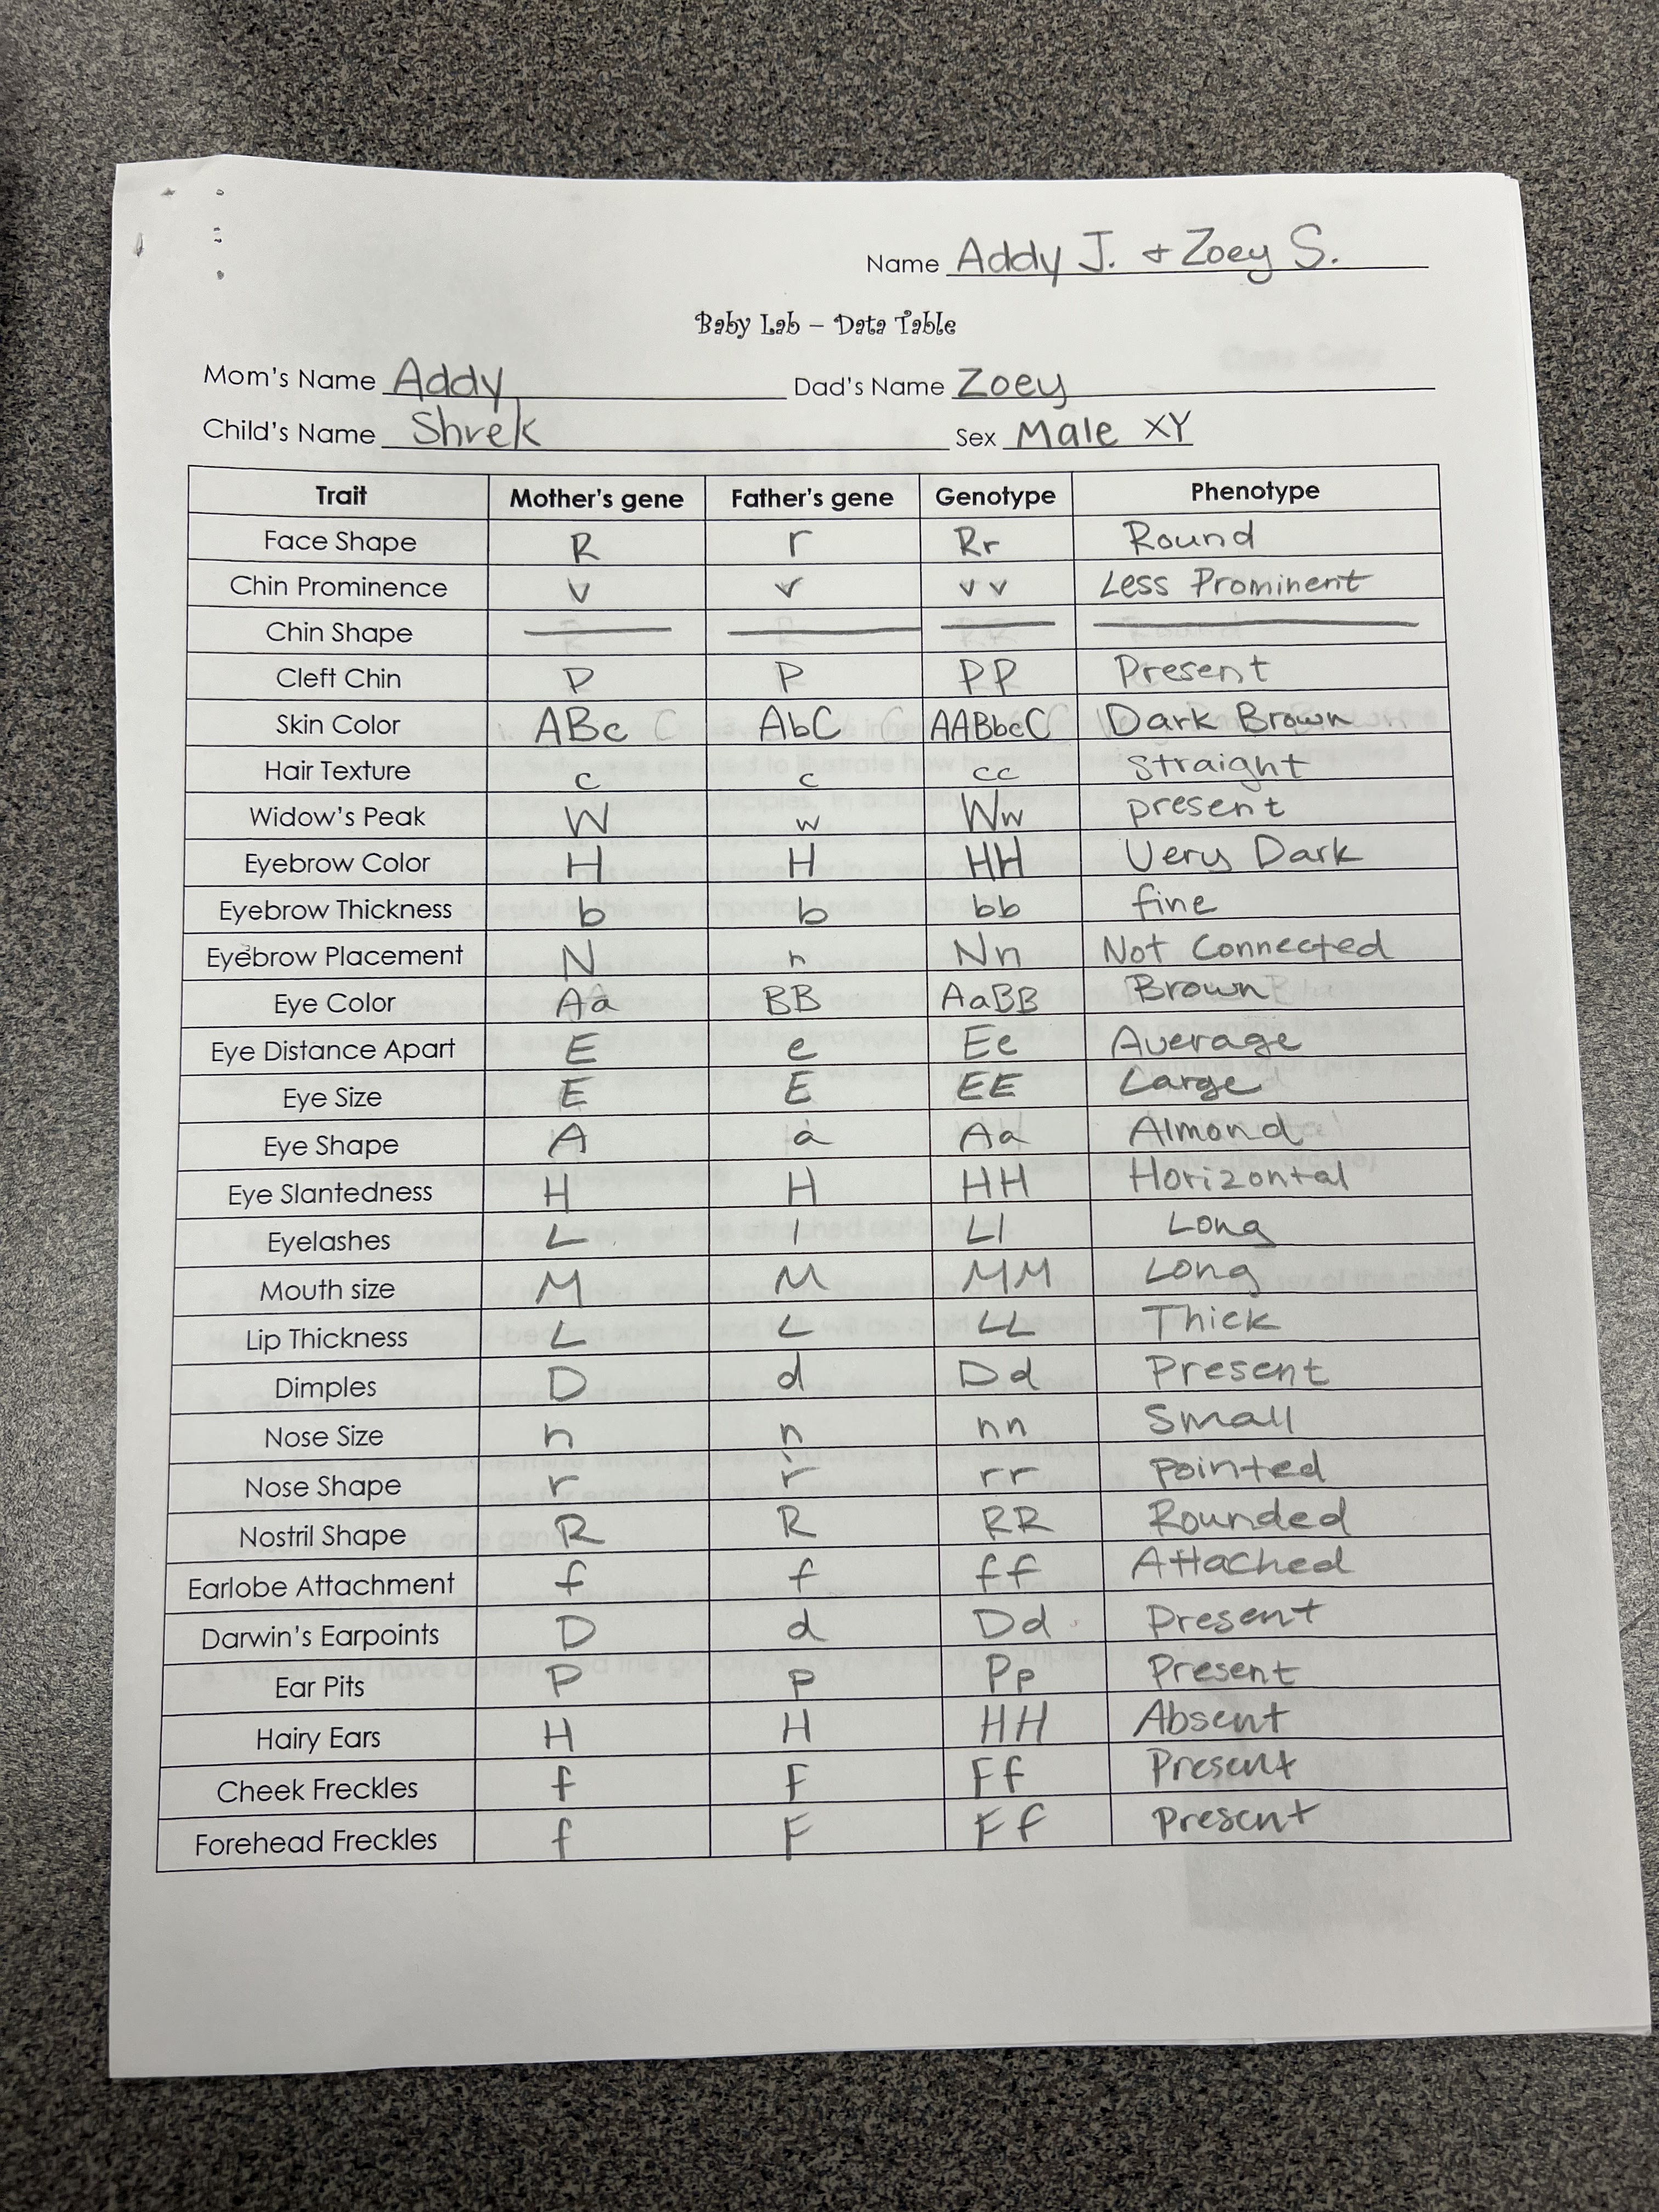 Name Addy J. + Zoey S.
Baby Lab – Data Table
Mom's Name Addy Dad's Name Zoey
Child's Name Shrek Sex Male XY
Trait Mother's gene Father's gene Genotype Phenotype
Face Shape R r Rr Round
Chin Prominence v v vv Less Prominent
Chin Shape
Cleft Chin P P PP Present
Skin Color ABc AbC AABbcC Dark Brown
Hair Texture c c cc Straight
Widow's Peak W w Ww present
Eyebrow Color H H HH Very Dark
Eyebrow Thickness b b bb fine
Eyebrow Placement N n Nn Not Connected
Eye Color Aa BB AaBB Brown
Eye Distance Apart E e Ee Average
Eye Size E E EE Large
Eye Shape A a Aa Almond
Eye Slantedness H H HH Horizontal
Eyelashes L l Ll Long
Mouth size M M MM Long
Lip Thickness L L LL Thick
Dimples D d Dd Present
Nose Size n n nn Small
Nose Shape r r rr pointed
Nostril Shape R R RR Rounded
Earlobe Attachment f f ff Attached
Darwin's Earpoints D d Dd Present
Ear Pits P p Pp Present
Hairy Ears H H HH Absent
Cheek Freckles f F Ff Present
Forehead Freckles f F Ff present